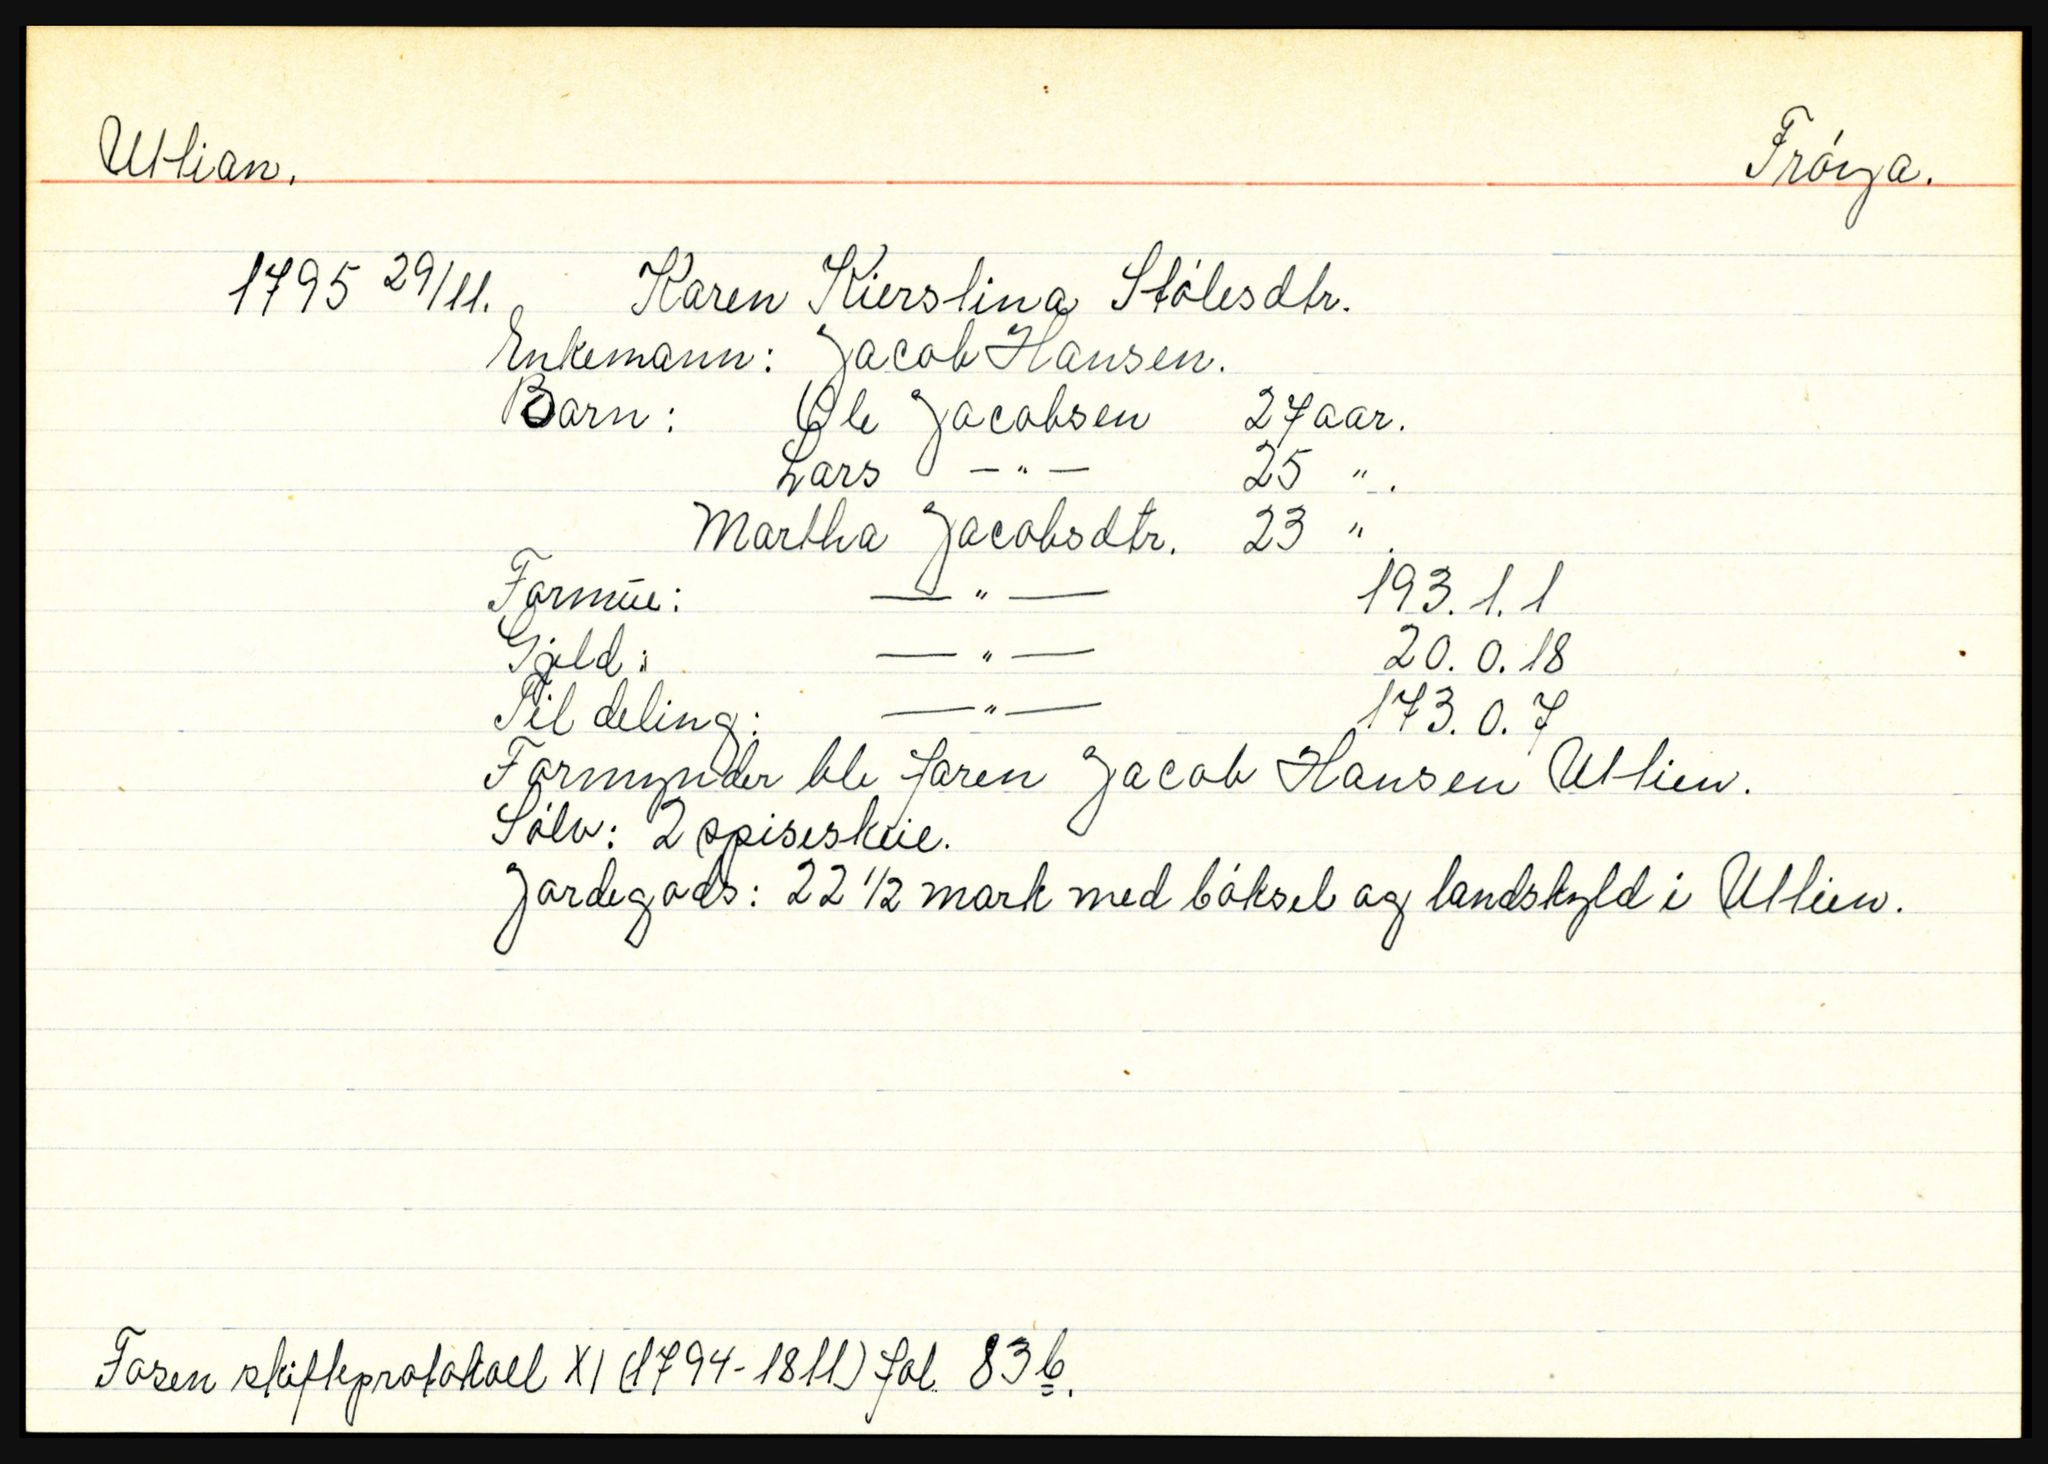 Utlian. Frøya.
1795 29/11. Karen Kierstina Stólesdtr.
Enkemann: Jacob Hansen.
Barn: Ole Jacobsen 27 aar.
Lars —"— 25 ".
Martha Jacobsdtr. 23 ".
Formúe: —"— 193.1.1
Gjeld: —"— 20.0.18
Til deling: —"— 173.0.7
Formynder ble faren Jacob Hansen Utlien.
Sólv: 2 spiseskeie.
Jordegods: 22 1/2 mark med bóksel og landskyld i Utlien.
Fosen skifteprotokoll XI (1794-1811) fol. 83 b.